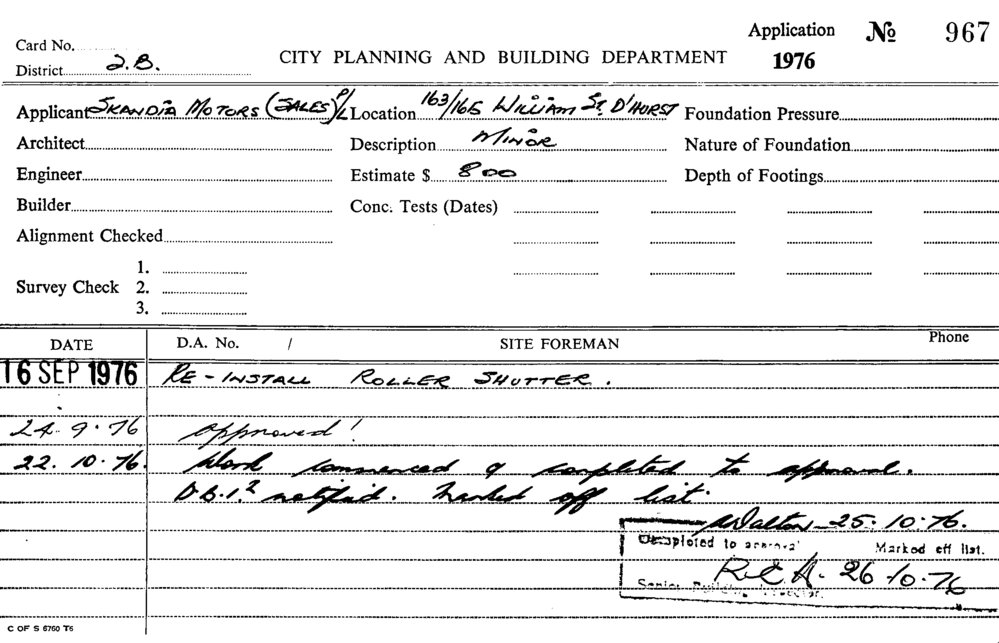 Application № 967
Card No.
District J.B. CITY PLANNING AND BUILDING DEPARTMENT 1976
Applicant SKANDIA MOTORS (SALES) P/L Location 163/165 WILLIAM ST. D'HURST Foundation Pressure
Architect Description MINOR Nature of Foundation
Engineer Estimate $ 800 Depth of Footings
Builder Conc. Tests (Dates)
Alignment Checked
1.
Survey Check 2.
3.
DATE D.A. No. / SITE FOREMAN Phone
16 SEP 1976 RE-INSTALL ROLLER SHUTTER.
24.9.76 approved!
22.10.76. Work commenced & completed to approval.
notified. Marked off list.
25.10.76.
Completed to approval Marked off list.
26.10.76
Senior Building Inspector.
C OF S 6760 T5